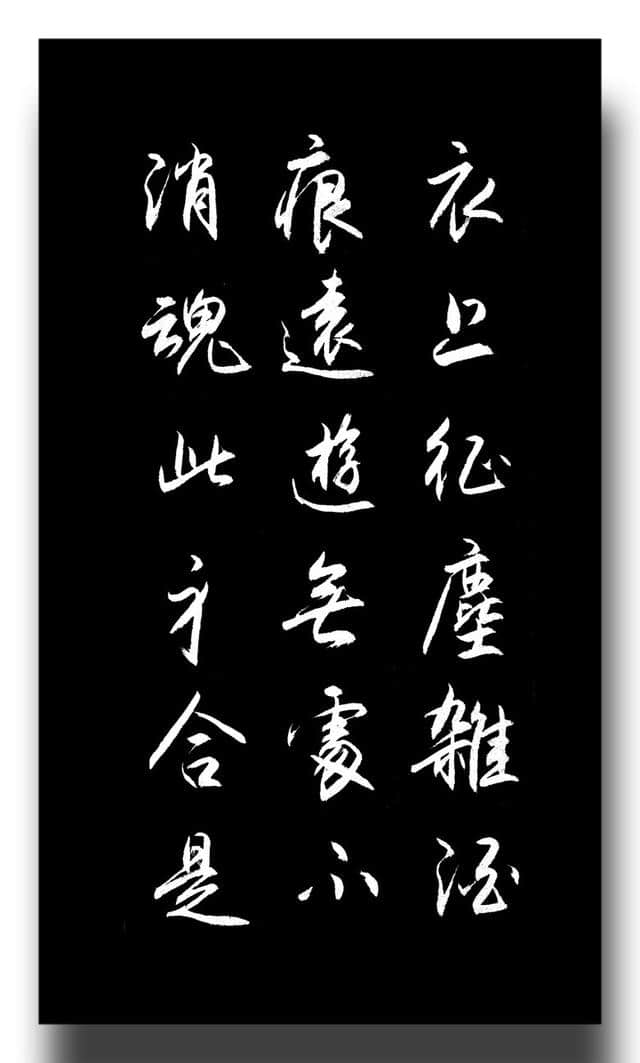 衣上征塵雜酒
痕遠遊無處不
消魂此身合是